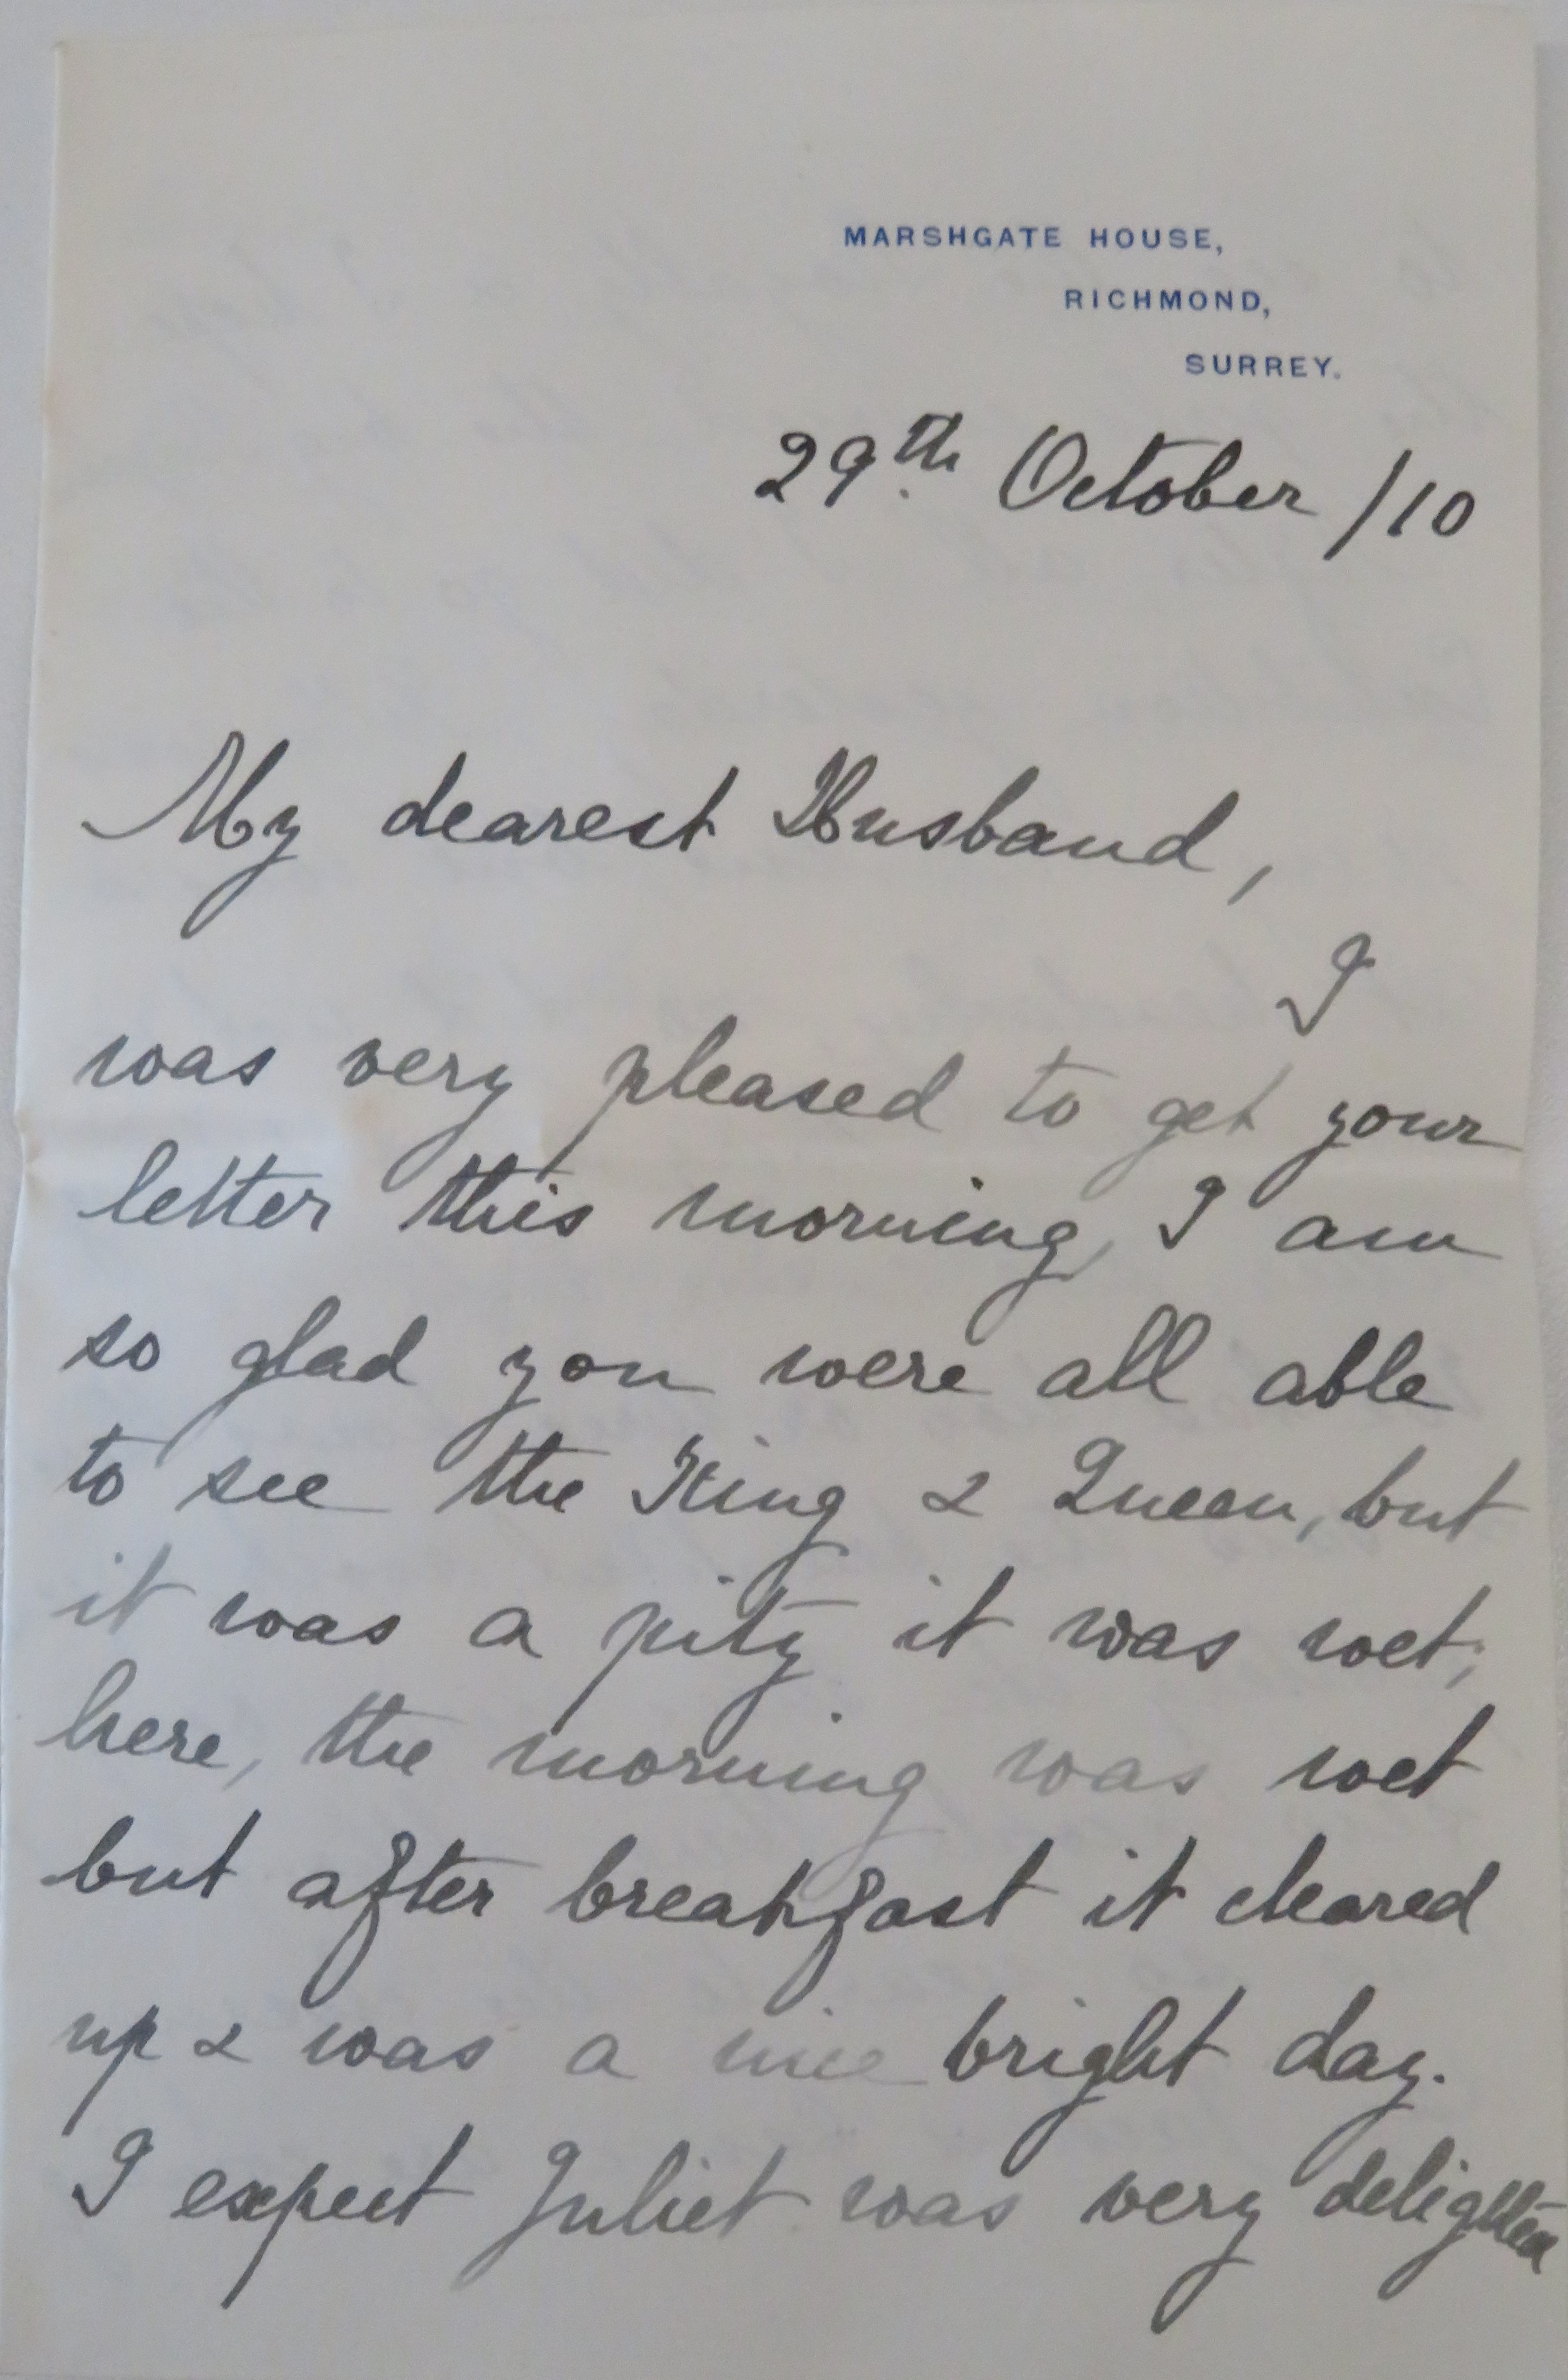 MARSHGATE HOUSE,
RICHMOND,
SURREY.
29th October /10
My dearest Husband,
I
was very pleased to get your
letter this morning, I am
so glad you were all able
to see the King & Queen, but
it was a pity it was wet;
here, the morning was wet
but after breakfast it cleared
up & was a nice bright day.
I expect Juliet was very delighted